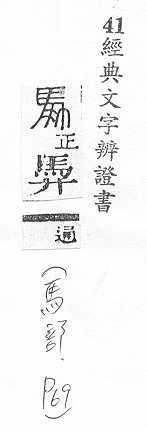 41經典文字辨證書
正
通
(馬部. P69)